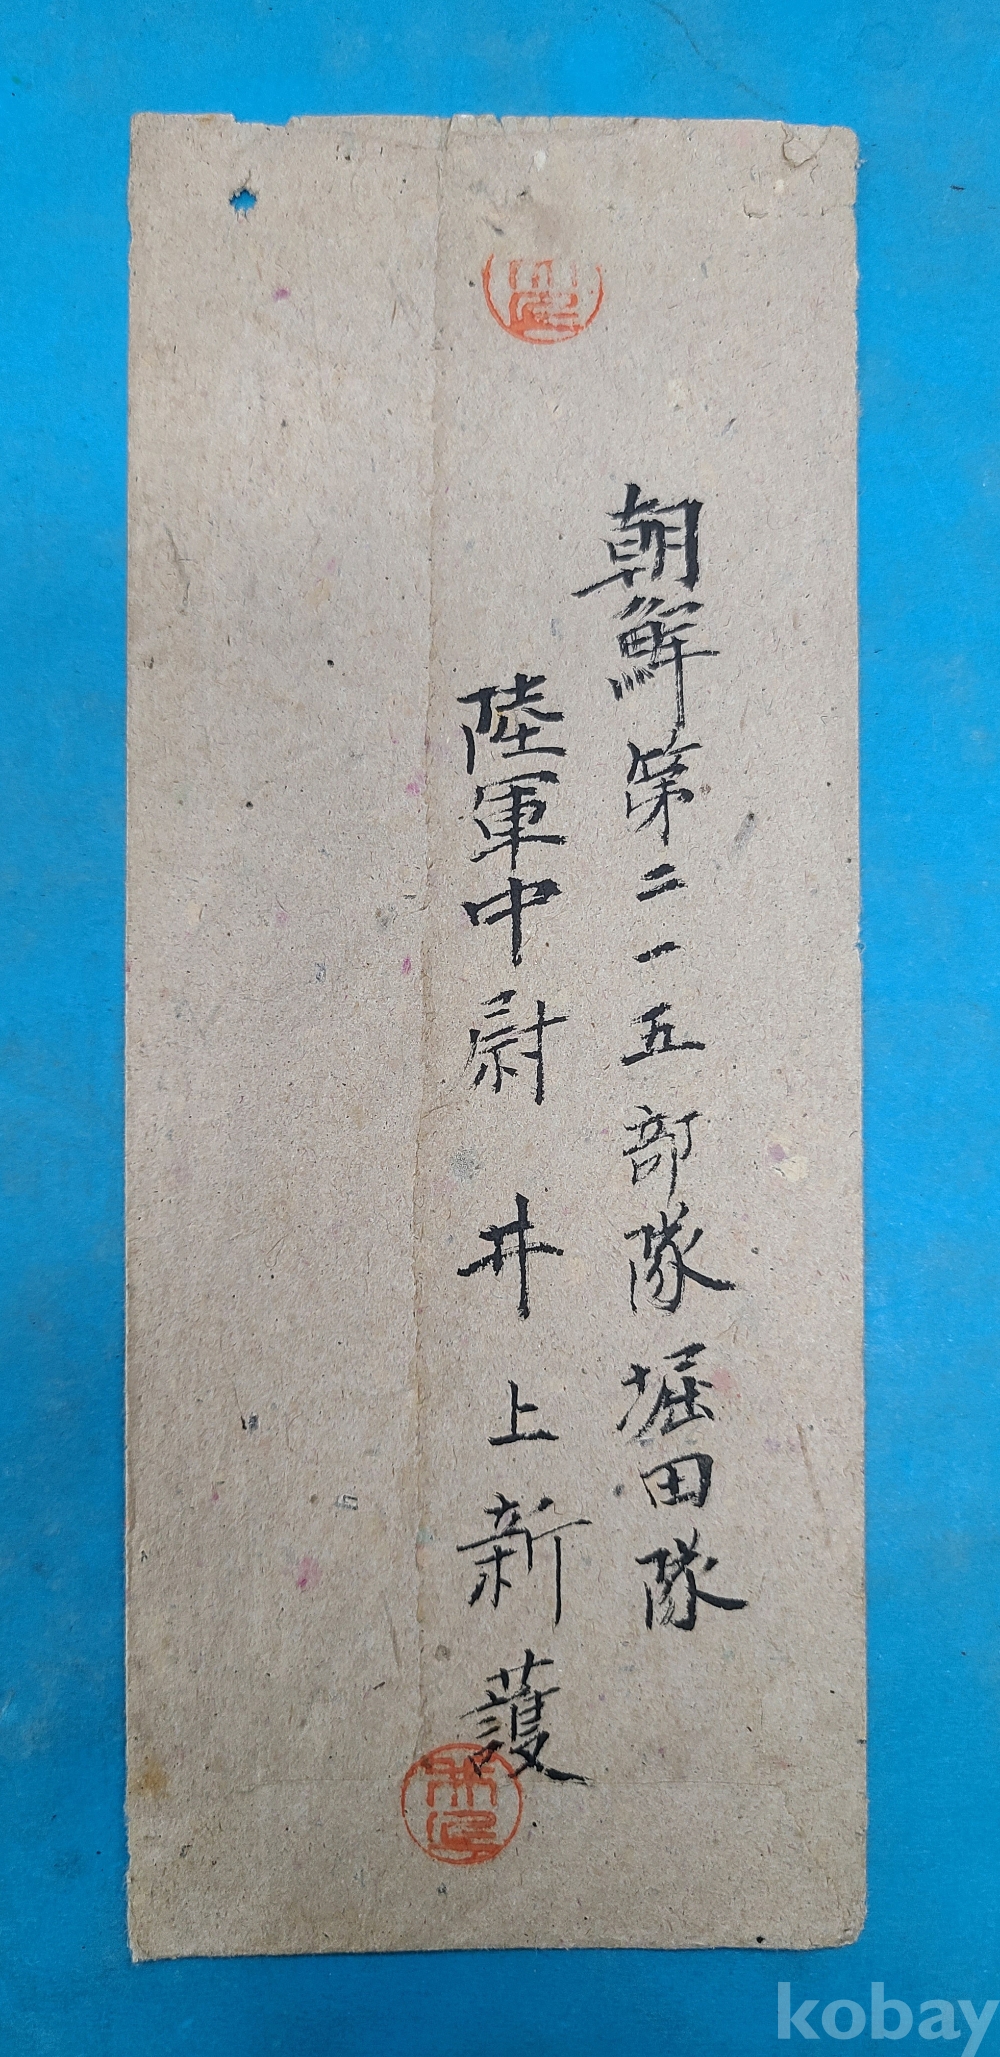 朝鮮第二一五部隊堀田隊
陸軍中尉 井上新護
kobay